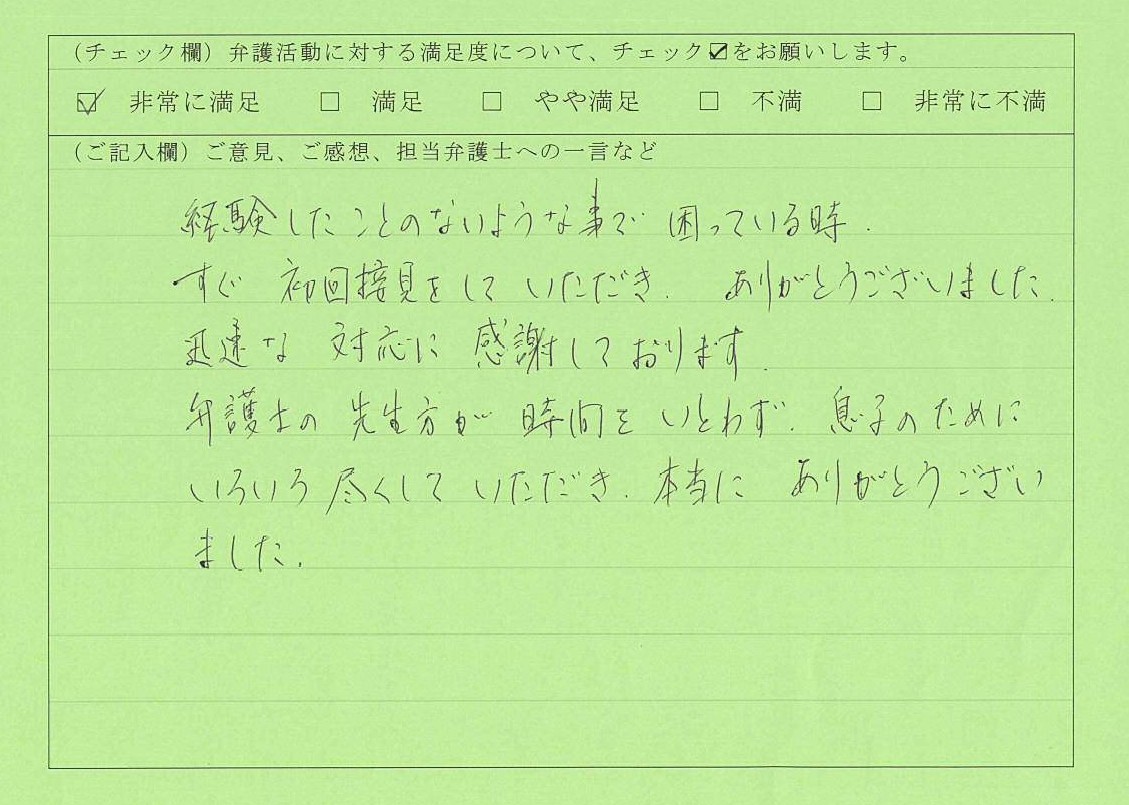 (チェック欄)弁護活動に対する満足度について、チェック☑をお願いします。
☑ 非常に満足 □ 満足 □ やや満足 □ 不満 □ 非常に不満
(ご記入欄)ご意見、ご感想、担当弁護士への一言など
経験したことのないような事で 困っている時.
すぐ 初回接見をして いただき. ありがとうございました.
迅速な 対応に 感謝しております.
弁護士の 先生方が 時間を いとわず. 息子のために
いろいろ 尽くして いただき. 本当に ありがとうござい
ました.